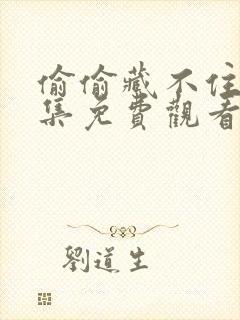 偷偷藏不住
集免費觀看
劉道生